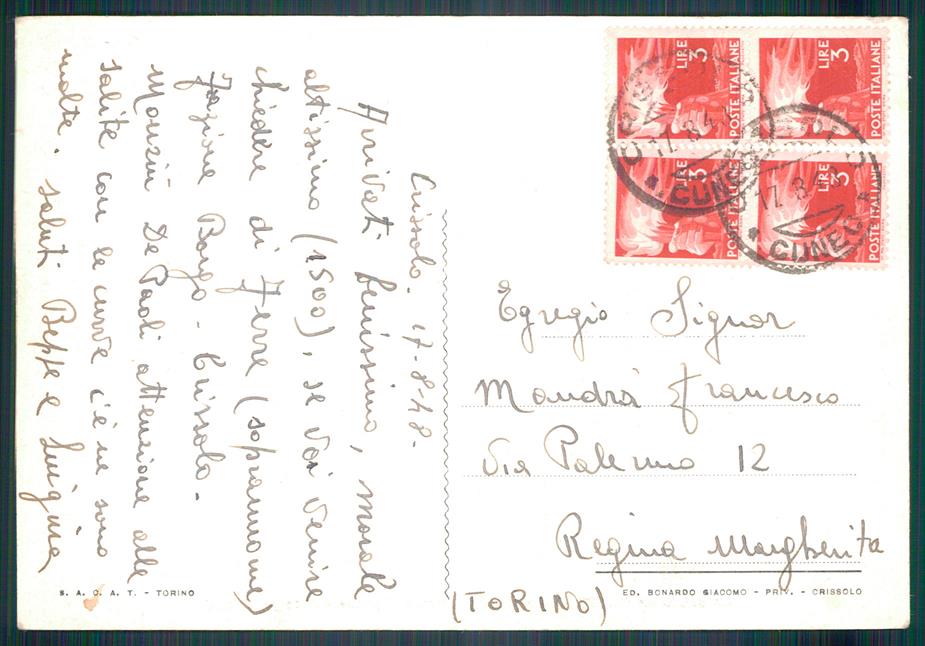 Crissolo. 17-8-48.
Arrivati benissimo, morale
altissimo (1500). se voi venire
chiedere di Ferre (soprannome)
frazione Borgo - Crissolo.
Monzù De Paoli attenzione alle
salite con le curve c'è ne sono
molte. saluti Beppe e Luigina
S. A. C. A. T. - TORINO
LIRE 3 POSTE ITALIANE
LIRE 3 POSTE ITALIANE
LIRE 3 POSTE ITALIANE
LIRE 3 POSTE ITALIANE
17.8.48
CUNEO
17.8.48
CUNEO
Egregio Signor
Mandrà Francesco
Via Palermo 12
Regina Margherita
(TORINO)
ED. BONARDO GIACOMO - PRIV. - CRISSOLO